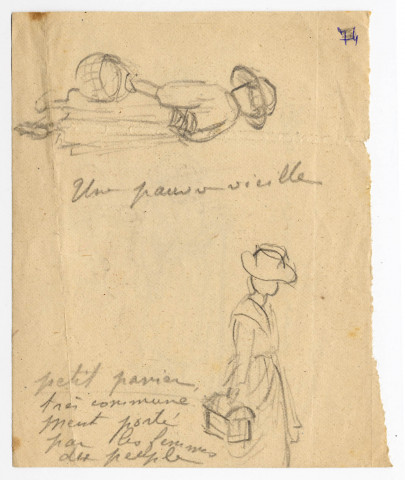 74
Une pauvre vieille
petit panier,
très commune
ment porté
par les femmes
du peuple